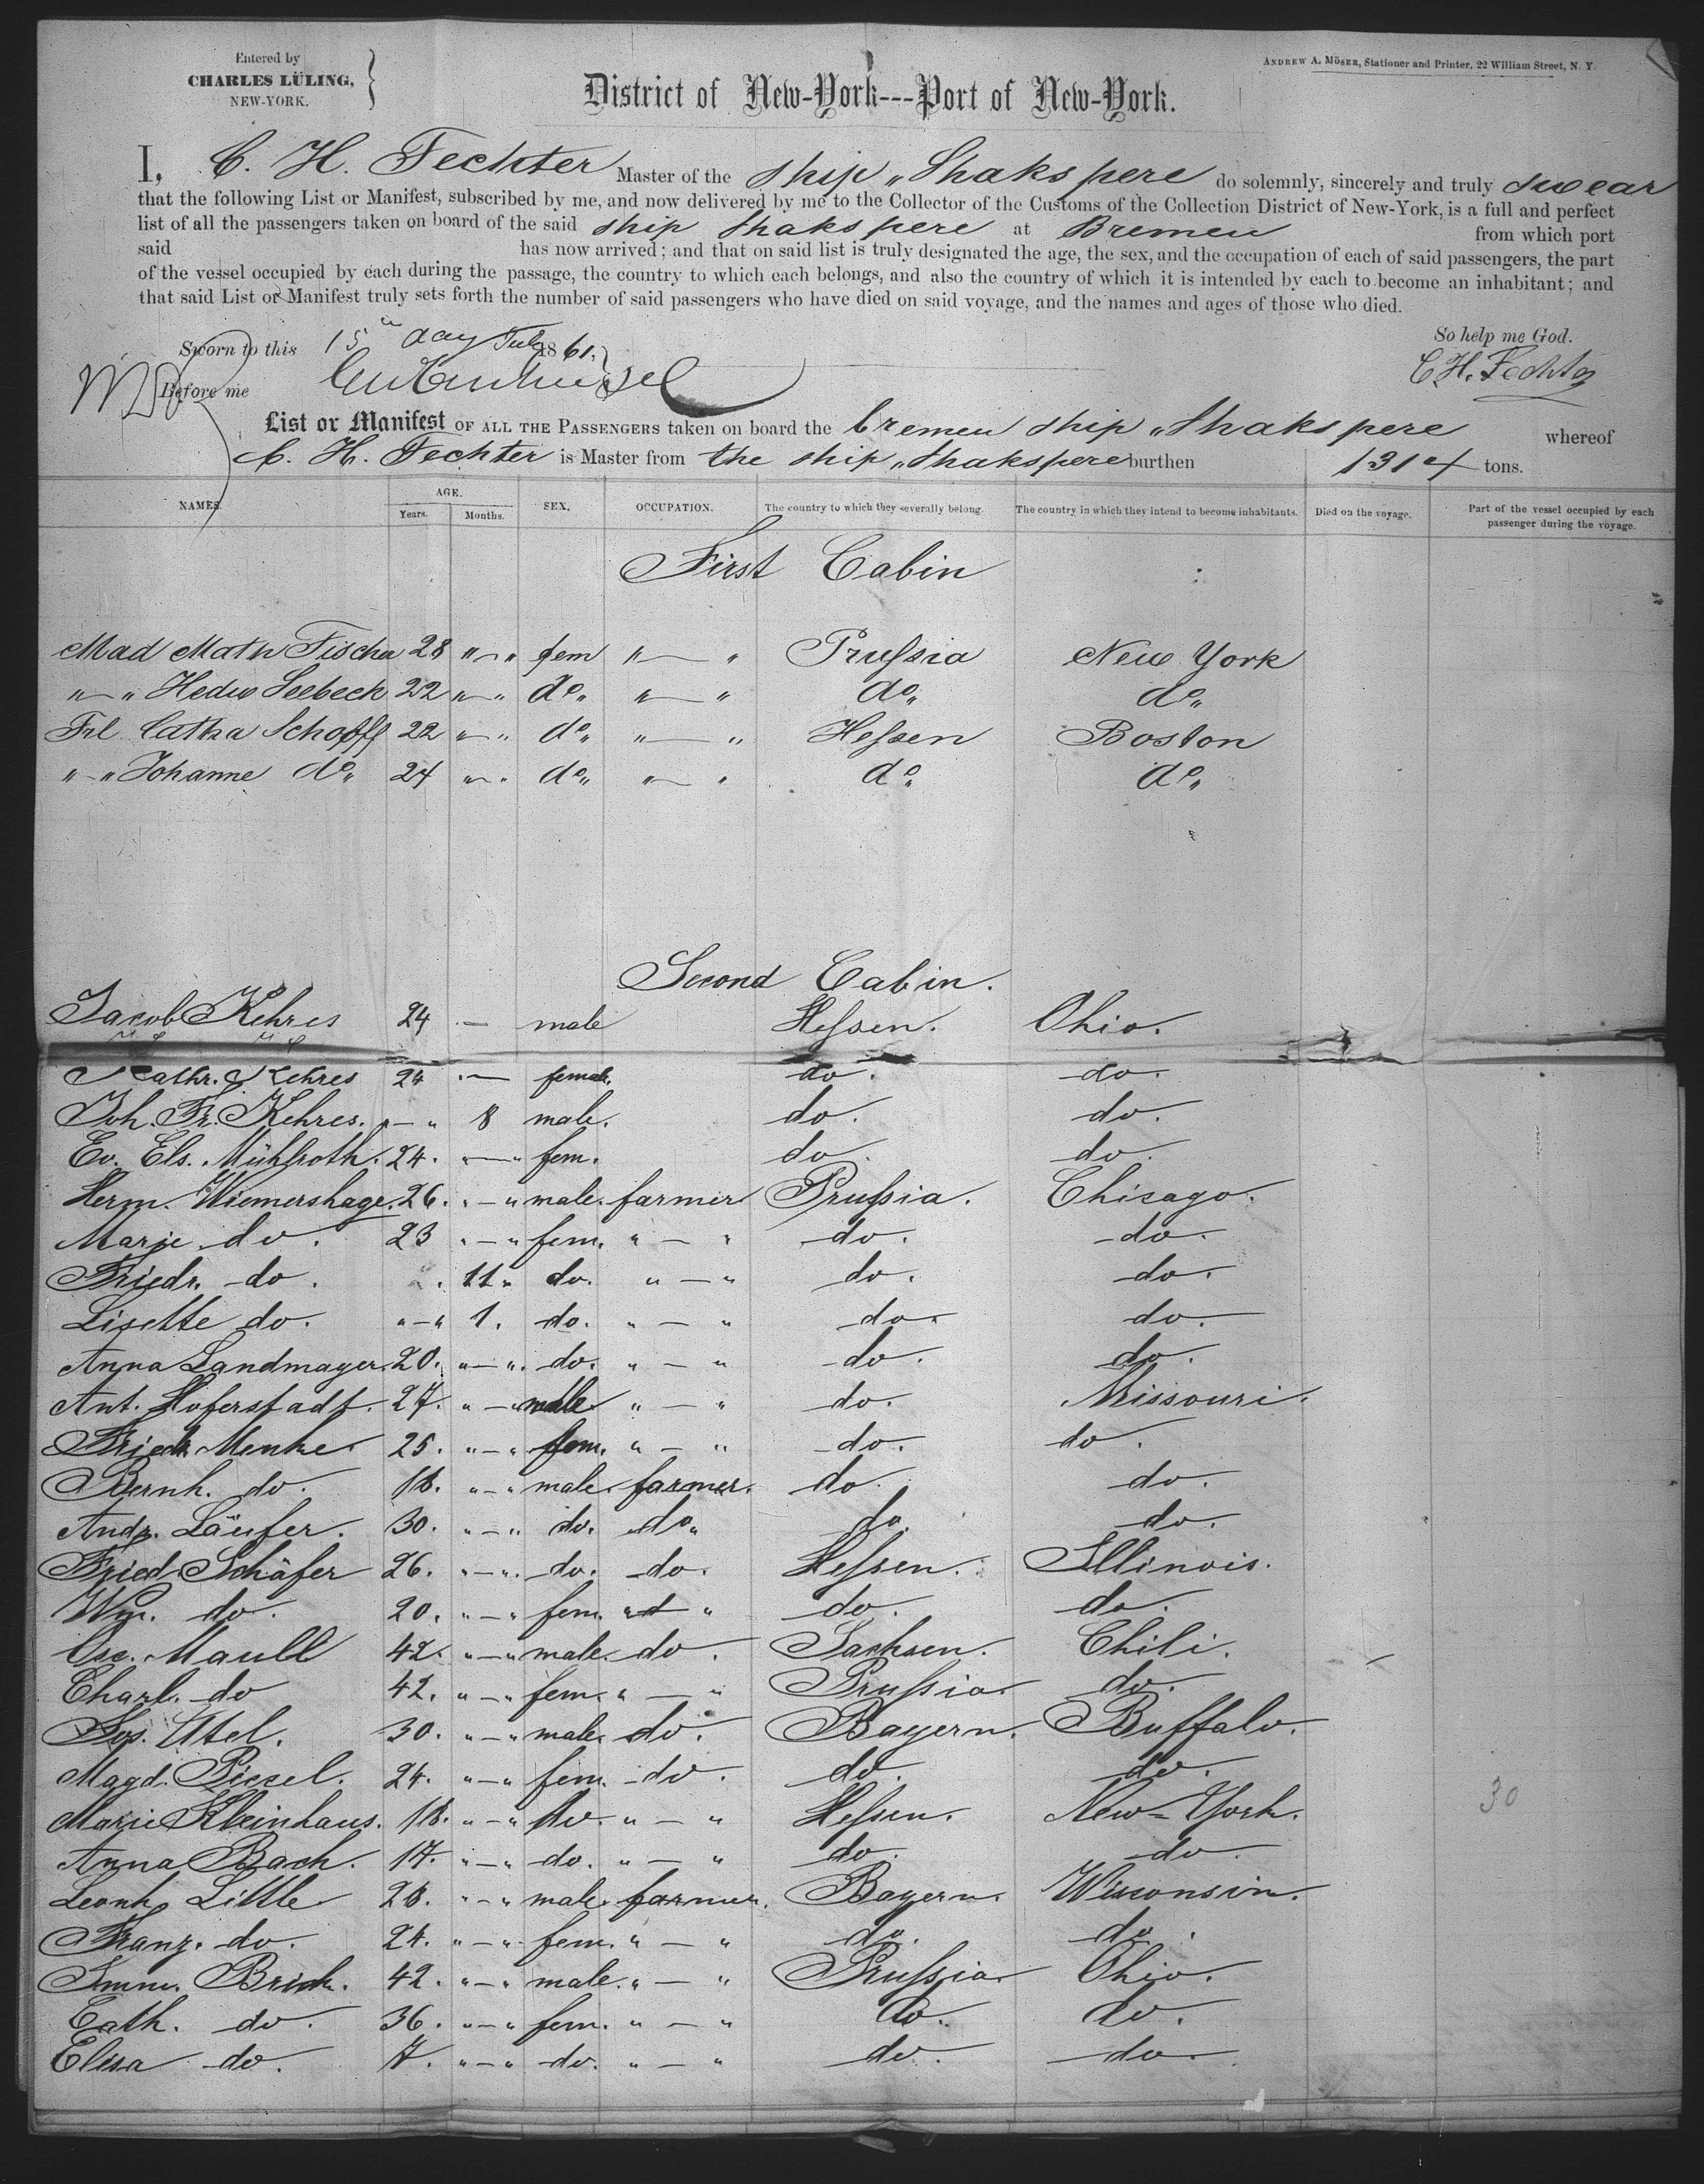 Entered by
CHARLES LÜLING,
NEW-YORK.
ANDREW A. MÖSER, Stationer and Printer, 22 William Street, N. Y.
District of New-York---Port of New-York.
I, C. H. Fechter Master of the ship „Shakspere do solemnly, sincerely and truly swear
that the following List or Manifest, subscribed by me, and now delivered by me to the Collector of the Customs of the Collection District of New-York, is a full and perfect
list of all the passengers taken on board of the said ship Shakspere at Bremen from which port
said has now arrived; and that on said list is truly designated the age, the sex, and the occupation of each of said passengers, the part
of the vessel occupied by each during the passage, the country to which each belongs, and also the country of which it is intended by each to become an inhabitant; and
that said List or Manifest truly sets forth the number of said passengers who have died on said voyage, and the names and ages of those who died.
So help me God.
Sworn to this 15 day July 1861.
C. H. Fechter
Before me
List or Manifest OF ALL THE PASSENGERS taken on board the bremen ship „Shakspere whereof
C. H. Fechter is Master from the ship „Shakspere burthen 1314 tons.
NAMES. AGE. Years. Months. SEX. OCCUPATION. The country to which they severally belong. The country in which they intend to become inhabitants. Died on the voyage. Part of the vessel occupied by each passenger during the voyage.
First Cabin
Mad Math Fischer 28 „—„ fem „—„ Prussia New York
„—„ Hedw Seebeck 22 „—„ do„ „—„ do„ do„
Frl Catha Schopff 22 „—„ do„ „—„ Hessen Boston
„—„ Johanne do„ 24 „—„ do„ „—„ do„ do„
Second Cabin.
Jacob Kehres 24 — male Hessen. Ohio.
Kathr. Kehres 24 — female. do. do.
Joh. Fr. Kehres. „—„ 8 male. do. do.
Ev. Els. Mühlroth. 24. „—„ fem. do. do.
Herm. Wiemershage. 26. „—„ male. farmer Prussia. Chicago.
Marie do. 23 „—„ fem. „—„ do. do.
Friedr. do. 11„ do. „—„ do. do.
Lisette do. „—„ 1. do. „—„ do. do.
Anna Landmayer. 20. „—„ do. „—„ do. do.
Ant. Hoferstadt. 27. „—„ male „—„ do. Missouri.
Friedr. Menke. 25. „—„ fem. „—„ do. do.
Bernh. do. 18. „—„ male. farmer. do. do.
Andr. Läufer. 30. „—„ do. do„ do. do.
Fried. Schäfer 26. „—„ do. do. Hessen. Illinois.
Wm. do. 20. „—„ fem. „—„ do. do.
Osc. Maull 42. „—„ male. do. Sachsen. Chili.
Charl. do 42. „—„ fem. „—„ Prussia. do.
Jos. Utel. 30. „—„ male. do. Bayern. Buffalo.
Magd. Piesel. 24. „—„ fem. do. do. do.
Marie Kleinhaus. 18. „—„ do. „—„ Hessen. New-York.
Anna Bach. 17. „—„ do. „—„ do. do.
30
Leonh. Little 28. „—„ male. farmer. Bayern. Wisconsin.
Franz. do. 24. „—„ fem. „—„ do. do.
Imm. Brich. 42. „—„ male. „—„ Prussia. Ohio.
Cath. do. 36. „—„ fem. „—„ do. do.
Elisa do. 7. „—„ do. „—„ do. do.